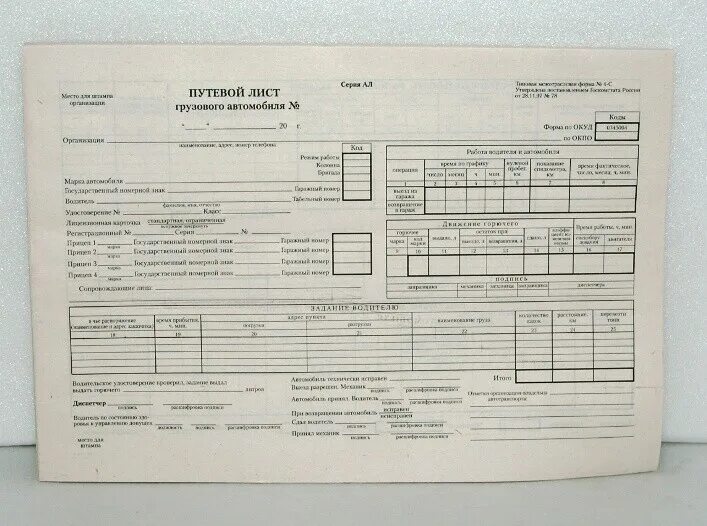 Серия АЛ
Типовая межотраслевая форма № 4-С
Утверждена постановлением Госкомстата России
от 28.11.97 № 78
Место для штампа
организации
ПУТЕВОЙ ЛИСТ
грузового автомобиля №
" " 20 г.
Коды
Форма по ОКУД 0345004
по ОКПО
Организация
наименование, адрес, номер телефона
Код
Режим работы
Колонна
Бригада
Марка автомобиля
Государственный номерной знак Гаражный номер
Водитель Табельный номер
фамилия, имя, отчество
Удостоверение № Класс
Лицензионная карточка стандартная, ограниченная
ненужное зачеркнуть
Регистрационный № Серия №
Прицеп 1 Государственный номерной знак Гаражный номер
марка
Прицеп 2 Государственный номерной знак Гаражный номер
марка
Прицеп 3 Государственный номерной знак Гаражный номер
марка
Прицеп 4 Государственный номерной знак Гаражный номер
марка
Сопровождающие лица
Работа водителя и автомобиля
операция время по графику нулевой пробег, км показание спидометра, км время фактическое, число, месяц, ч, мин.
число месяц ч мин.
1 2 3 4 5 6 7 8
выезд из гаража
возвращение в гараж
Движение горючего
горючее выдано, л остаток при сдано, л Время работы, ч, мин.
марка код марки выезде, л возвращении, л спецоборудования двигателя
9 10 11 12 13 14 15 16 17
подпись
заправщика механика механика диспетчера
ЗАДАНИЕ ВОДИТЕЛЮ
в чье распоряжение (наименование и адрес заказчика) время прибытия, ч, мин. адрес пункта наименование груза количество ездок расстояние, км перевезти тонн
погрузки разгрузки
18 19 20 21 22 23 24 25
Итого
Водительское удостоверение проверил, задание выдал
выдать горючего литров
Диспетчер
подпись расшифровка подписи
Водитель по состоянию здо-
ровья к управлению допущен
должность подпись расшифровка подписи
место для
штампа
Автомобиль технически исправен
Выезд разрешен. Механик
подпись расшифровка подписи
Автомобиль принял. Водитель
подпись расшифровка подписи
При возвращении автомобиль исправен
неисправен
Сдал водитель
подпись расшифровка подписи
Принял механик
подпись расшифровка подписи
Отметки организации-владельца
автотранспорта